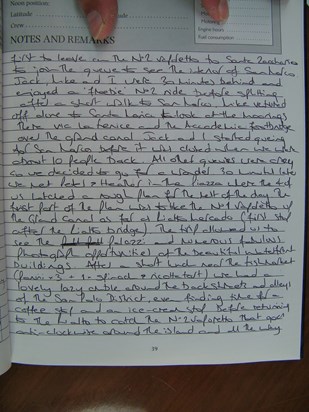 Noon position:
Latitude
Crew
Engine hours
Fuel consumption
NOTES AND REMARKS
first to leave on the No2 vaporetto to Santa Zaccharia
to join the queue to see the interior of San Marco
Jack, Luke and I were 30 minutes behind and
enjoyed a 'freebie' No2 ride before splitting
after a short walk to San Marco. Luke ventured
off alone to Santa Maria to look at the moorings
there via and the Accademia footbridge
over the Grand Canal. Jack and I started queuing
for San Marco before it closed when we were
about 10 people back. All other queues were crazy
so we decided to go for a wander. 30 minutes later
we met Pete & Heather in the Piazza where the 4 of
us hatched a rough plan for the rest of the day. The
first part of the plan was to take the No2 Vaporetto up
the Grand Canal as far as Rialto Mercado (first stop
after the Rialto bridge). The trip allowed us to
see the palazzi and numerous fabulous
photograph opportunities of the beautiful waterfront
buildings. After a short lunch near the fishmarket
( = 3 + 1 & ricotta tart) we had a
lovely lazy amble around the backstreets and alleys
of the San Polo District, even finding time for a
coffee stop and an ice-cream stop before returning
to the Rialto to catch the No2 Vaporetto that goes
anti-clockwise around the island and all the way
39